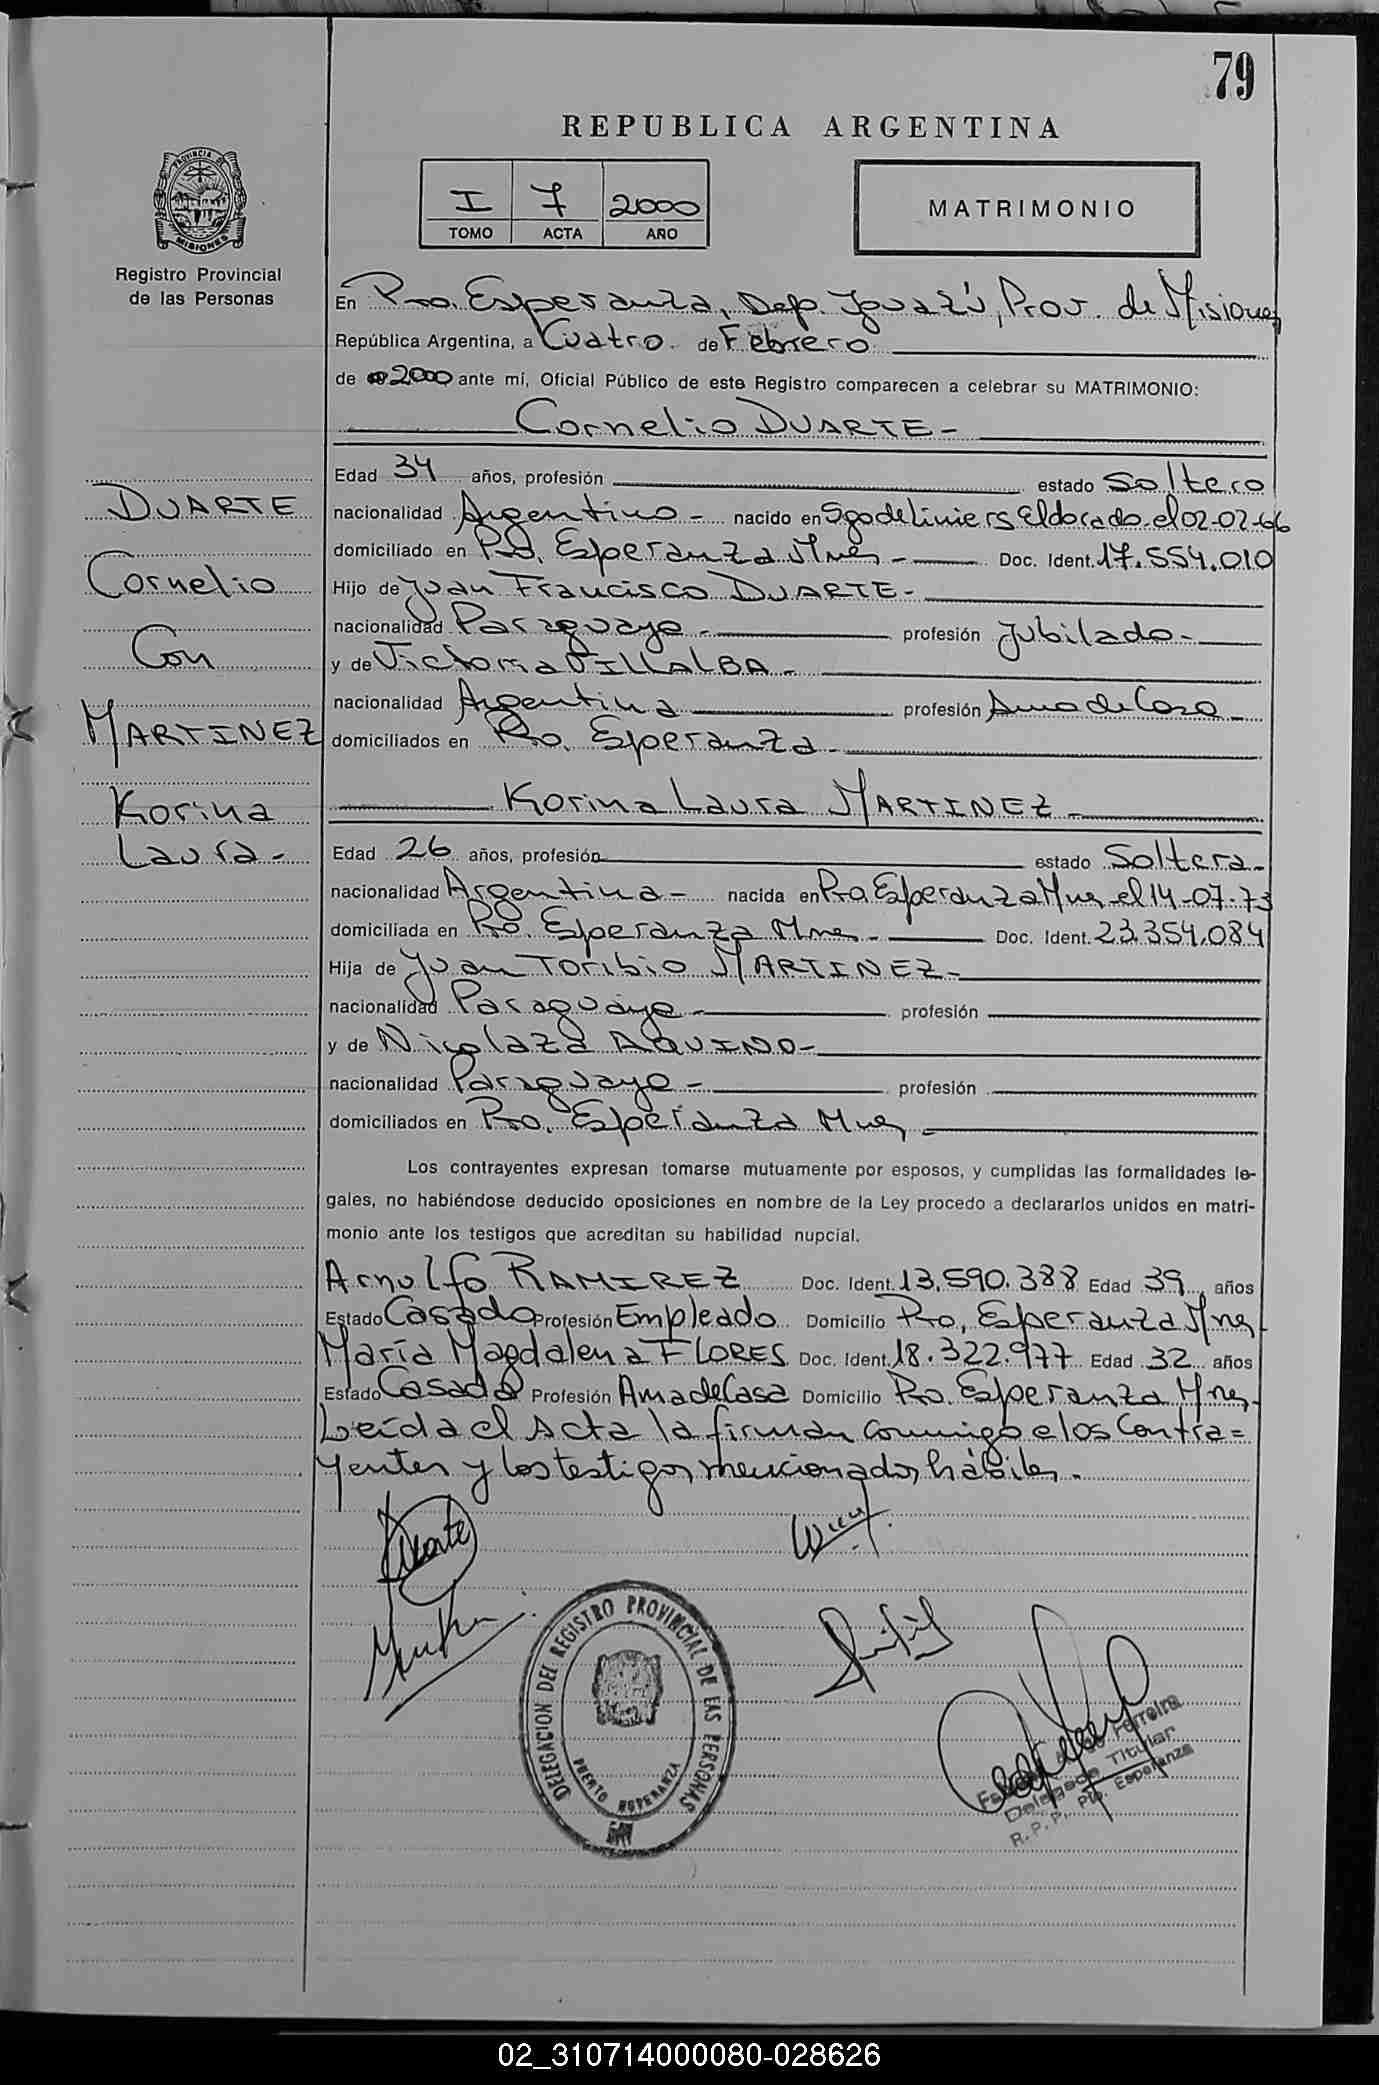 79
REPUBLICA ARGENTINA
I 7 2000
TOMO ACTA AÑO
MATRIMONIO
PROVINCIA DE MISIONES
Registro Provincial
de las Personas
En Pto. Esperanza, Dep. Iguazú, Prov. de Misiones
República Argentina, a Cuatro de Febrero
de 2000 ante mí, Oficial Público de este Registro comparecen a celebrar su MATRIMONIO:
Cornelio DUARTE -
Edad 34 años, profesión estado Soltero
nacionalidad Argentino - nacido en Sgo de Liniers Eldorado el 02-02-66
domiciliado en Pto. Esperanza Mnes - Doc. Ident. 17.554.010
Hijo de Juan Francisco DUARTE -
nacionalidad Paraguayo - profesión Jubilado -
y de Victoria VILLALBA -
nacionalidad Argentina profesión Ama de Casa -
domiciliados en Pto. Esperanza -
DUARTE
Cornelio
Con
MARTINEZ
Korina
Laura -
Korina Laura MARTINEZ -
Edad 26 años, profesión estado Soltera -
nacionalidad Argentina - nacida en Pto Esperanza Mnes el 14-07-73
domiciliada en Pto. Esperanza Mnes - Doc. Ident. 23.354.084
Hija de Juan Toribio MARTINEZ -
nacionalidad Paraguayo - profesión
y de Nicolaza AQUINO -
nacionalidad Paraguaya - profesión
domiciliados en Pto. Esperanza Mnes -
Los contrayentes expresan tomarse mutuamente por esposos, y cumplidas las formalidades le-
gales, no habiéndose deducido oposiciones en nombre de la Ley procedo a declararlos unidos en matri-
monio ante los testigos que acreditan su habilidad nupcial.
Arnulfo RAMIREZ Doc. Ident. 13.590.388 Edad 39 años
Estado Casado Profesión Empleado Domicilio Pto. Esperanza Mnes
María Magdalena FLORES Doc. Ident. 18.322.977 Edad 32 años
Estado Casada Profesión Ama de Casa Domicilio Pto. Esperanza Mnes -
Leída el Acta la firman conmigo e los Contra=
yentes y los testigos mencionados hábiles.
Duarte
DELEGACION DEL REGISTRO PROVINCIAL DE LAS PERSONAS
PUERTO ESPERANZA
Ferreira
Delegado Titular
R.P.P. Pto. Esperanza
02_310714000080-028626